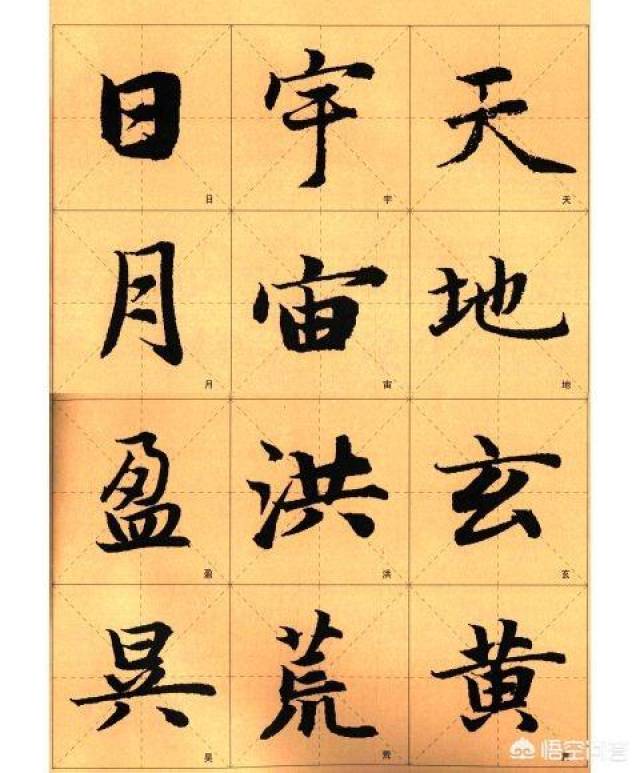 天地玄黄
宇宙洪荒
日月盈昃
天
地
玄
宇
宙
洪
荒
日
月
盈
昃
悟空问答